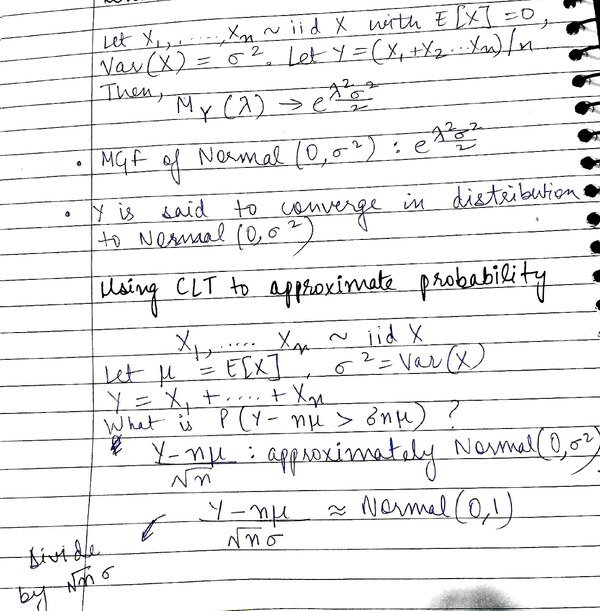 Let X₁,.....,Xₙ ~ iid X with E[X] = 0,
Var(X) = σ². Let Y = (X₁+X₂...Xₙ)/n
Then,
M_Y(λ) → e^(λ²σ²/2)
• MGF of Normal (0,σ²) : e^(λ²σ²/2)
• Y is said to converge in distribution
to Normal (0,σ²)
Using CLT to approximate probability
X₁,..... Xₙ ~ iid X
Let μ = E[X] , σ² = Var(X)
Y = X₁ + ..... + Xₙ
What is P(Y - nμ > δnμ) ?
(Y-nμ)/√n : approximately Normal(0,σ²)
(Y-nμ)/(√nσ) ≈ Normal(0,1)
↙
Divide
by √nσ